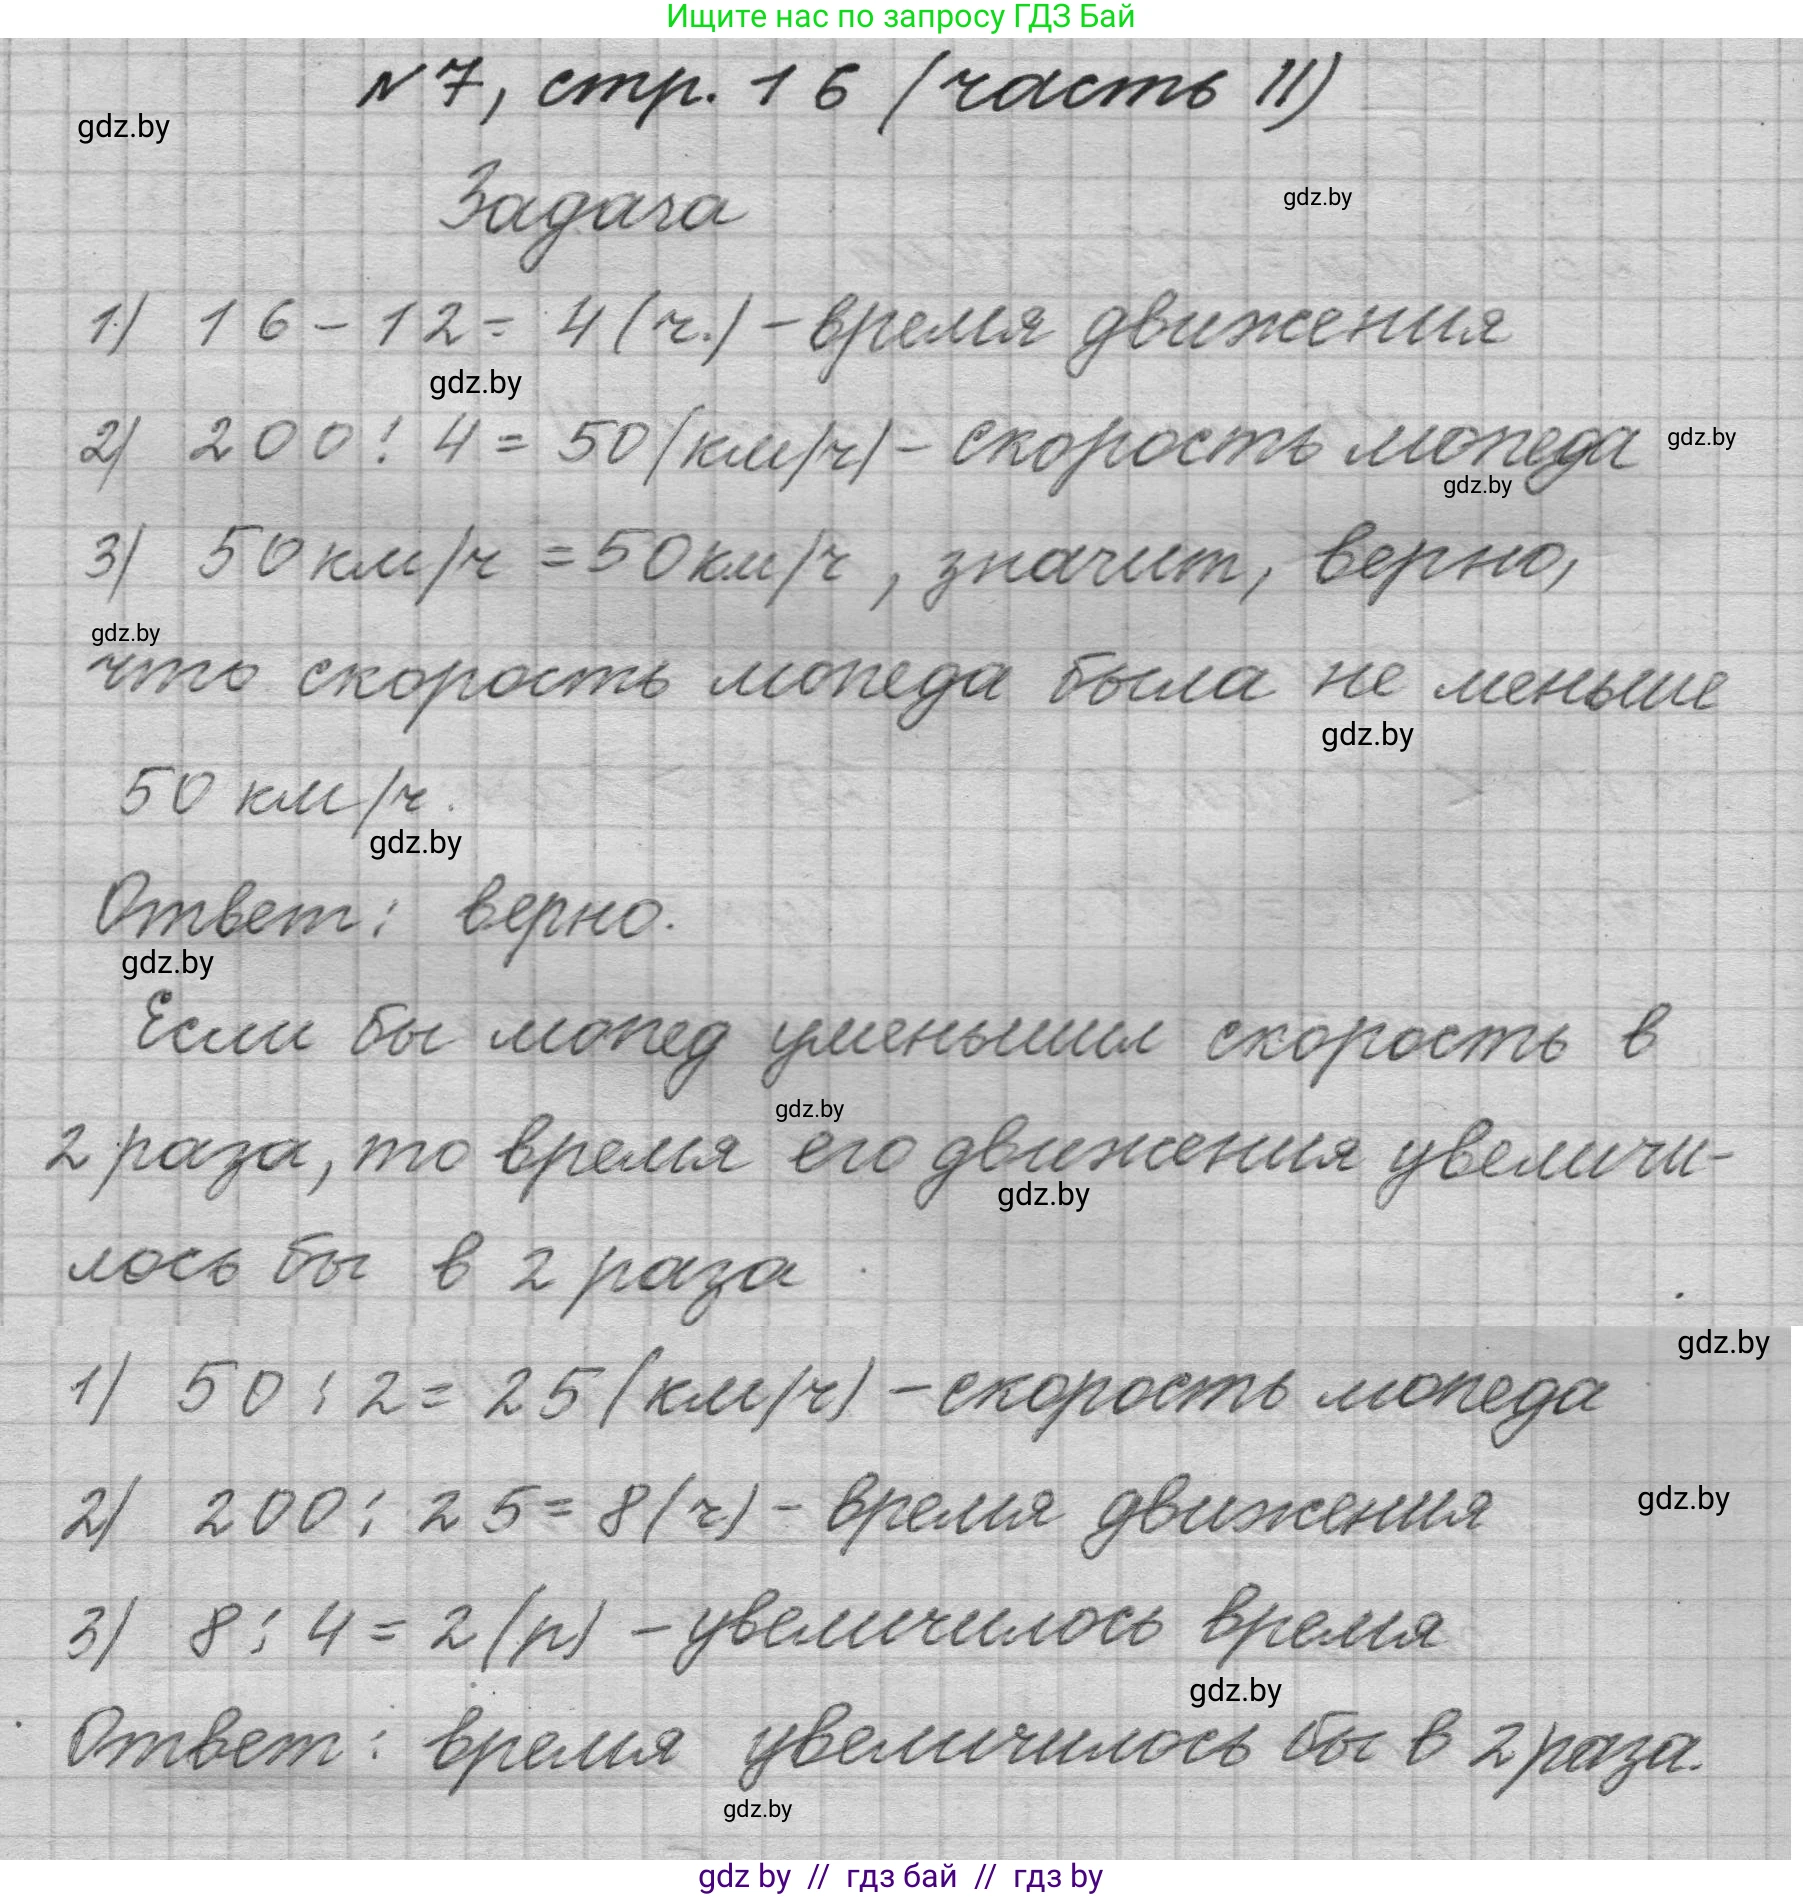 Ищите нас по запросу ГДЗ Бай
№7, стр. 16 (часть II)
gdz.by
Задача
gdz.by
1) 16-12= 4(ч.) - время движения
gdz.by
2) 200:4= 50(км/ч) - скорость мопеда
gdz.by
gdz.by
3) 50км/ч =50км/ч, значит, верно,
gdz.by
что скорость мопеда была не меньше
gdz.by
50 км/ч.
gdz.by
Ответ: верно.
gdz.by
Если бы мопед уменьшил скорость в
gdz.by
2 раза, то время его движения увеличи-
gdz.by
лось бы в 2 раза
gdz.by
1) 50:2= 25(км/ч) - скорость мопеда
2) 200:25= 8(ч) - время движения
gdz.by
3) 8:4= 2(р) - увеличилось время
gdz.by
Ответ: время увеличилось бы в 2 раза.
gdz.by
gdz by // гдз бай // гдз by